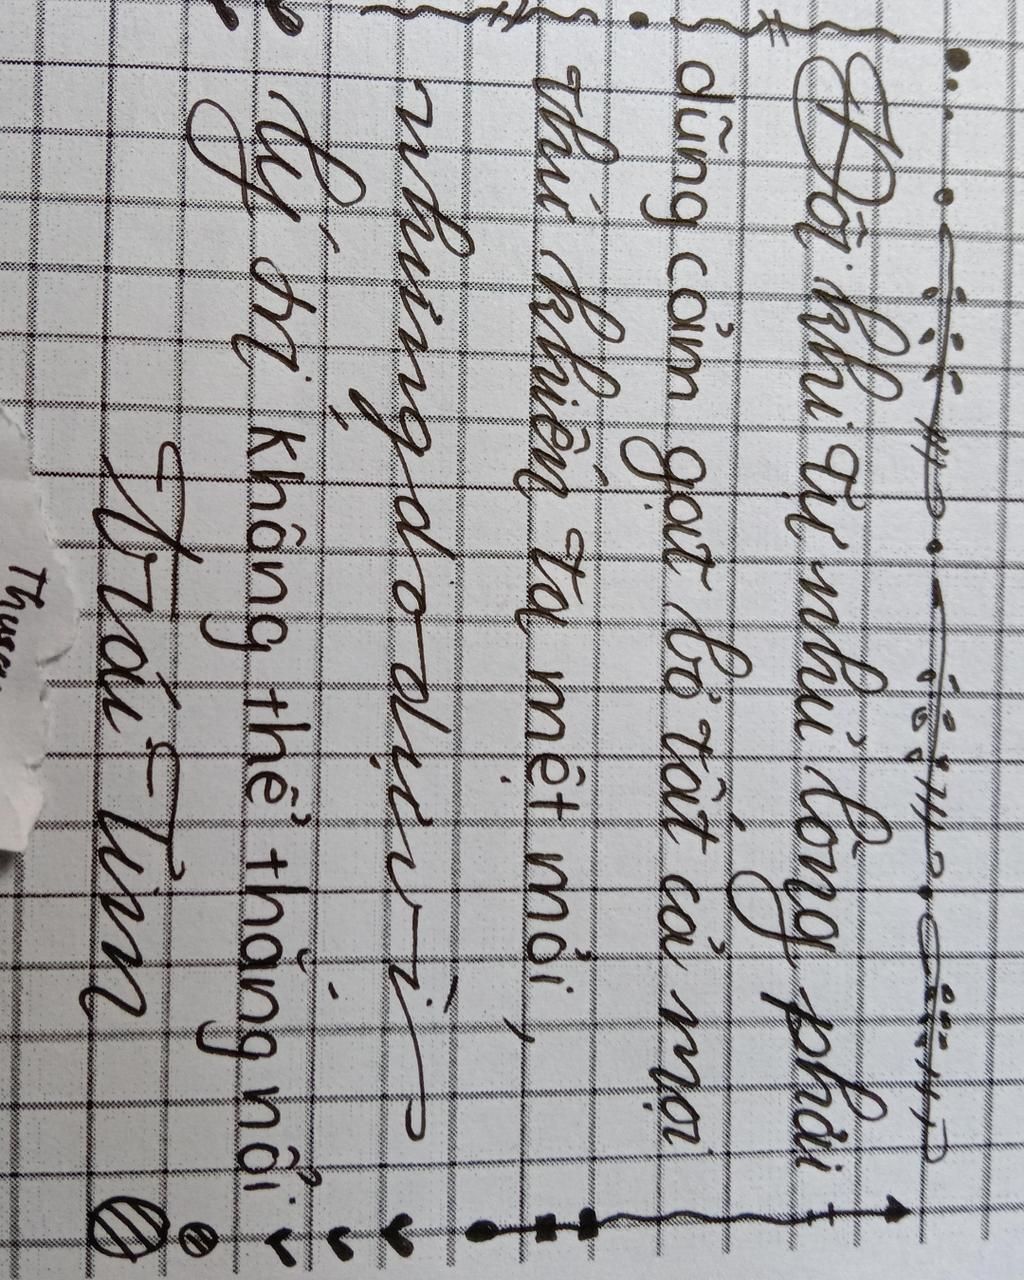 Đôi khi tự nhủ lòng phải
dũng cảm gạt bỏ tất cả mọi
thứ khiến ta mệt mỏi,
nhưng do dự vì
lý trí không thể thắng nổi
trái tim